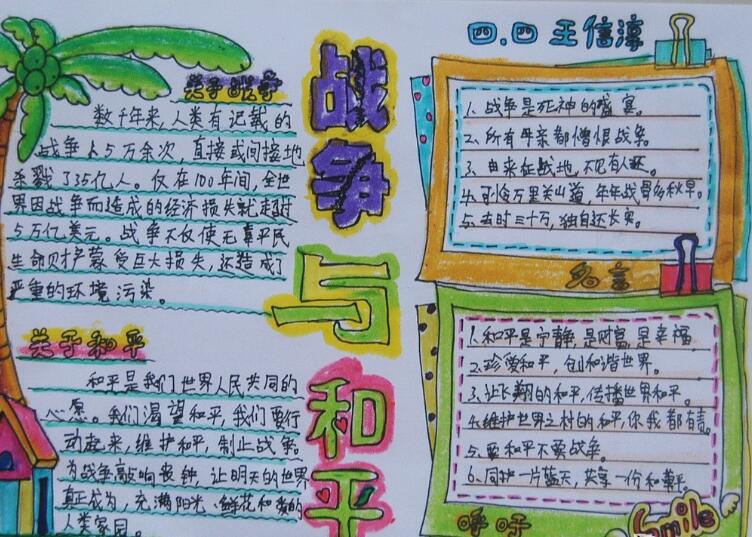 四.四 王信淳
战争与和平
关于战争
数千年来,人类有记载的
战争大5万余次,直接或间接地
杀戮了35亿人。仅在100年间,全世
界因战争而造成的经济损失就超过
5万亿美元。战争不仅使无辜平民
生命财产蒙受巨大损失,还造成了
严重的环境污染。
关于和平
和平是我们世界人民共同的
心愿。我们渴望和平,我们要行
动起来,维护和平,制止战争。
为战争敲响丧钟,让明天的世界
真正成为,充满阳光、鲜花和爱的
人类家园。
1.战争是死神的盛宴。
2.所有母亲都憎恨战争。
3.由来征战地,不见有人还。
4.可怜万里关山道,年年战骨多秋草。
5.去时三十万,独自还长安。
名言
1.和平是宁静,是财富,是幸福
2.珍爱和平,创和谐世界。
3.让飞翔的和平,传播世界和平。
4.维护世界之村的和平,你我都有责。
5.要和平不要战争。
6.同护一片蓝天,共享一份和平。
呼吁
Smile